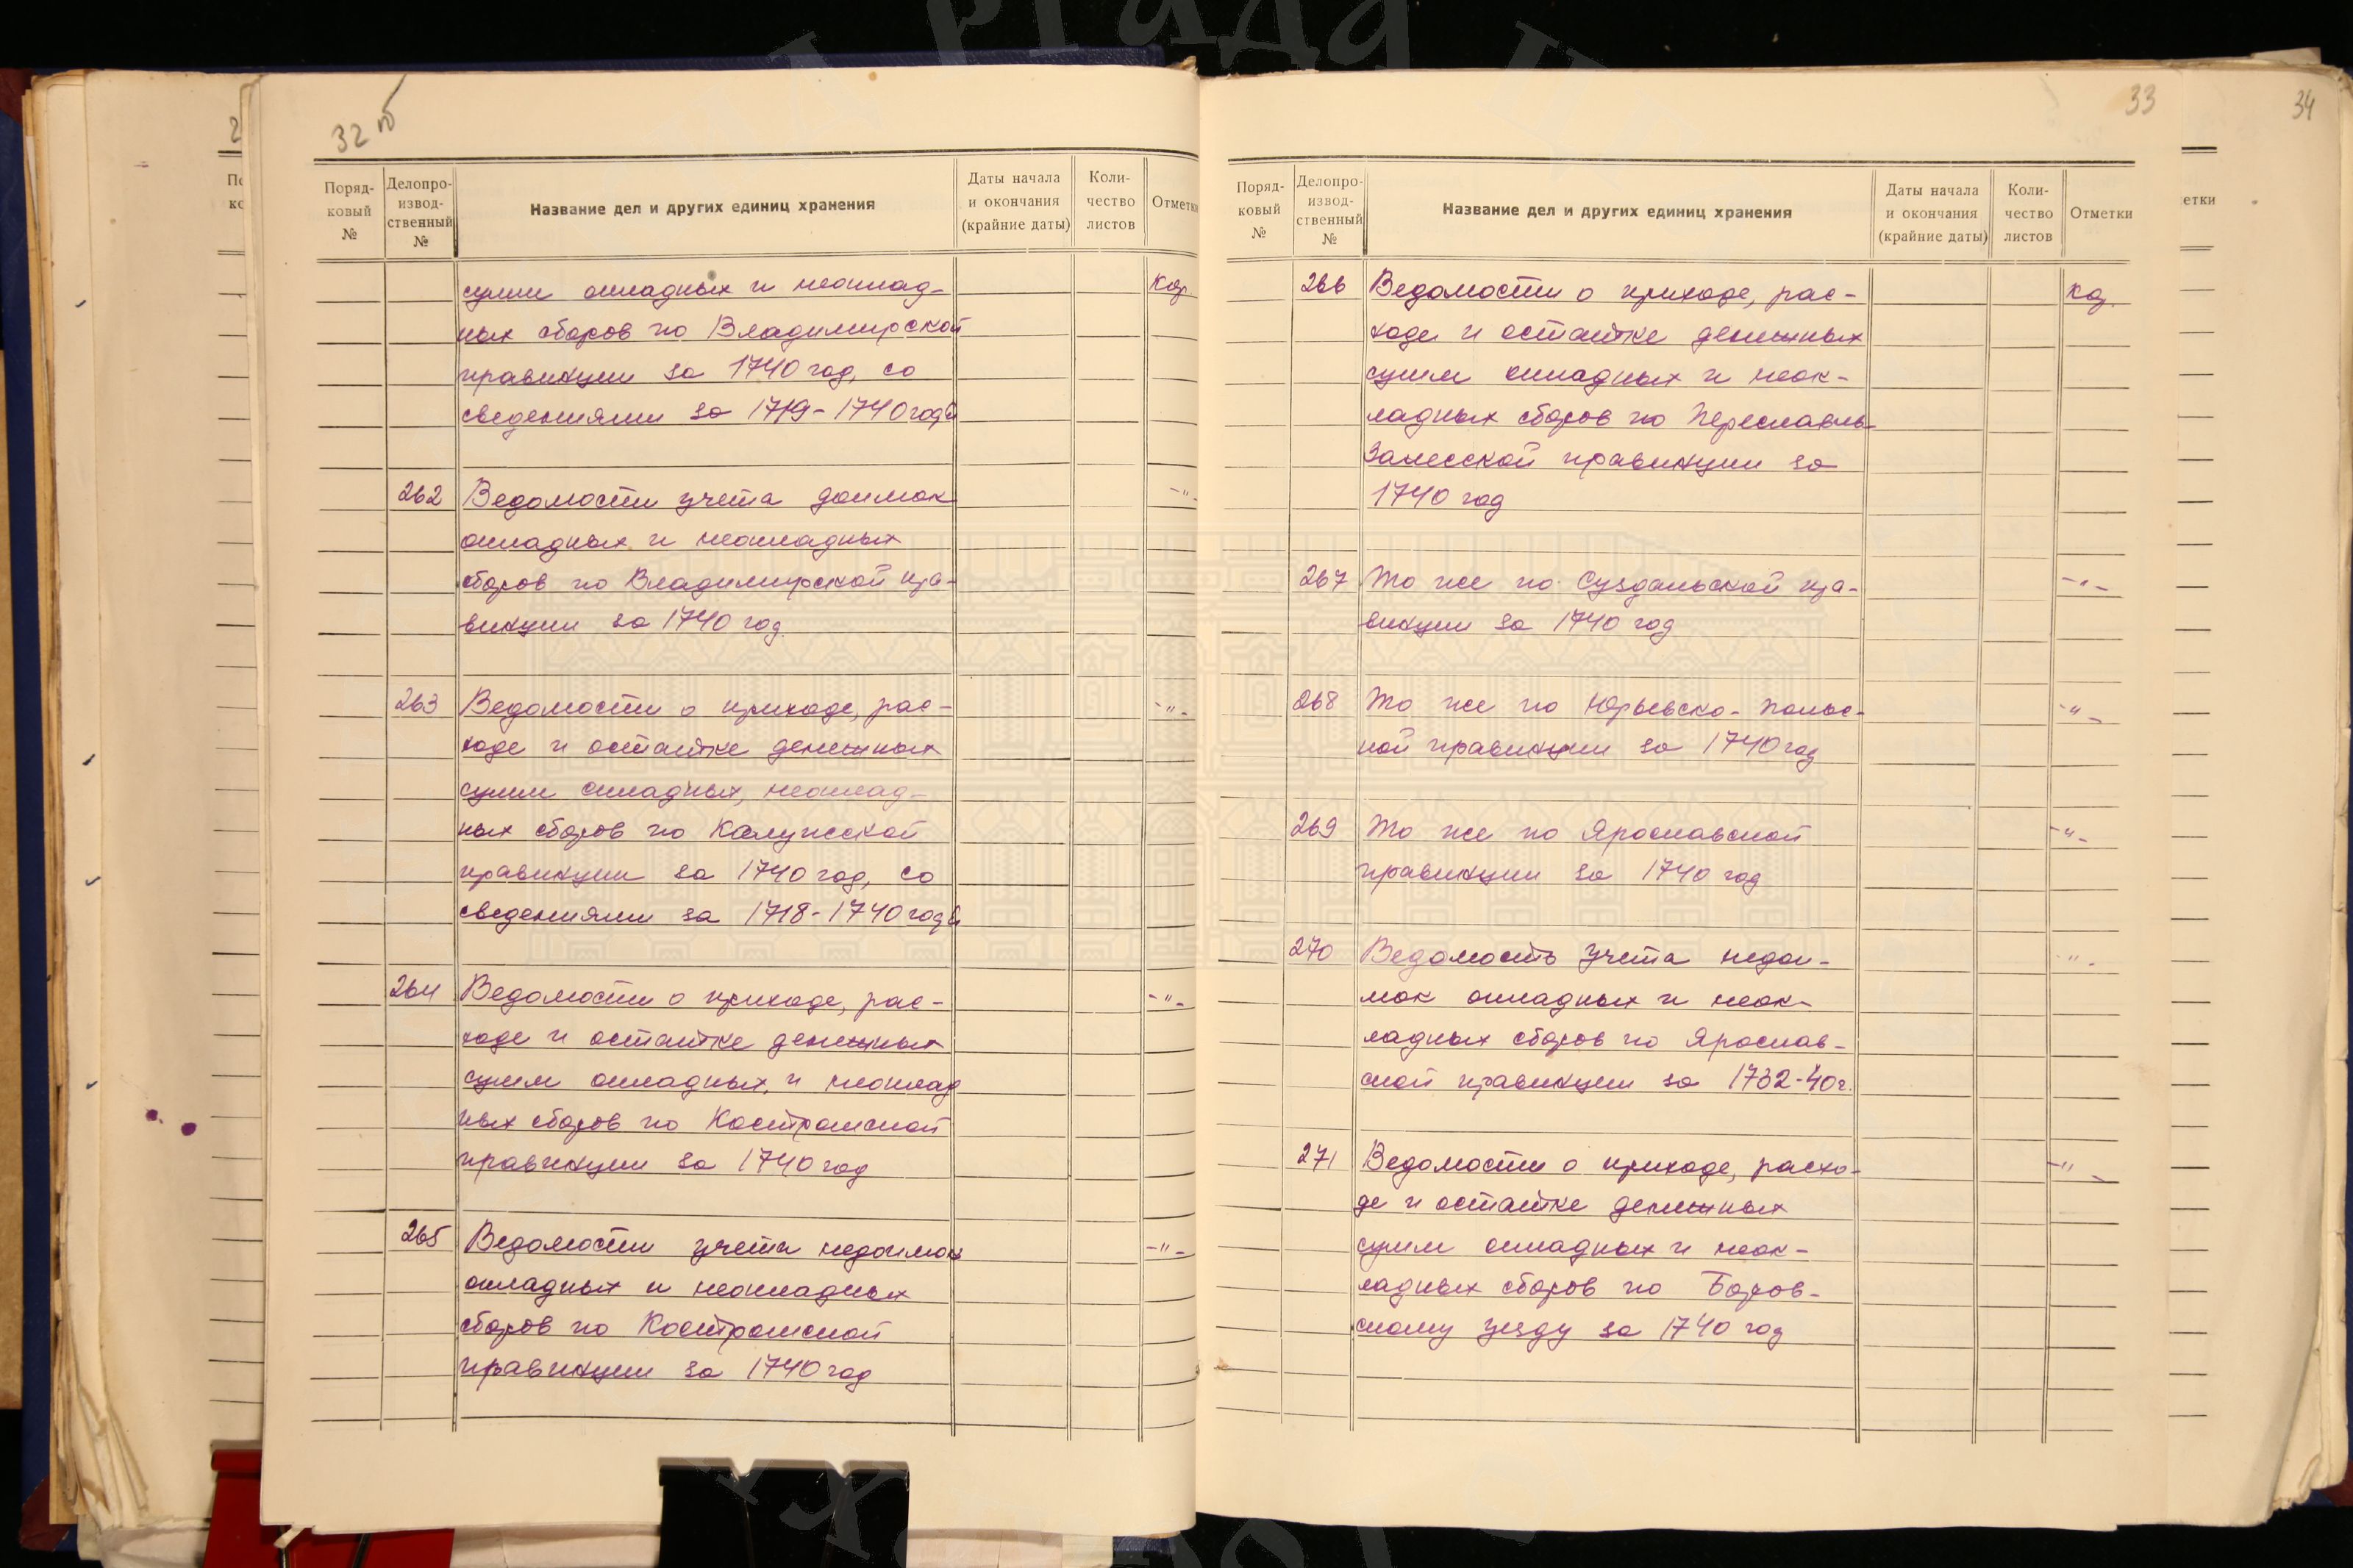 32 об
Поряд-
ковый
№
Делопро-
извод-
ственный
№
Название дел и других единиц хранения
Даты начала
и окончания
(крайние даты)
Коли-
чество
листов
Отметки
сумм окладных и неоклад-
ных сборов по Владимирской
провинции за 1740 год, со
сведениями за 1719-1740 годы
262 Ведомости учета доимок -"-
окладных и неокладных
сборов по Владимирской про-
винции за 1740 год
263 Ведомости о приходе, рас- -"-
ходе и остатке денежных
сумм окладных, неоклад-
ных сборов по Калужской
провинции за 1740 год, со
сведениями за 1718-1740 годы
264 Ведомости о приходе, рас- -"-
ходе и остатке денежных
сумм окладных и неоклад
ных сборов по Костромской
провинции за 1740 год
265 Ведомости учета недоимок -"-
окладных и неокладных
сборов по Костромской
провинции за 1740 год
33
Поряд-
ковый
№
Делопро-
извод-
ственный
№
Название дел и других единиц хранения
Даты начала
и окончания
(крайние даты)
Коли-
чество
листов
Отметки
266 Ведомости о приходе, рас-
ходе и остатке денежных
сумм окладных и неок-
ладных сборов по Переславль-
Залесской провинции за
1740 год
267 То же по Суздальской про- -"-
винции за 1740 год
268 То же по Юрьевско-Польс- -"-
кой провинции за 1740 год
269 То же по Ярославской -"-
провинции за 1740 год
270 Ведомость учета недои- -"-
мок окладных и неок-
ладных сборов по Ярослав-
ской провинции за 1732-40 г.
271 Ведомости о приходе, расхо- -"-
де и остатке денежных
сумм окладных и неок-
ладных сборов по Боров-
скому уезду за 1740 год
34
етки